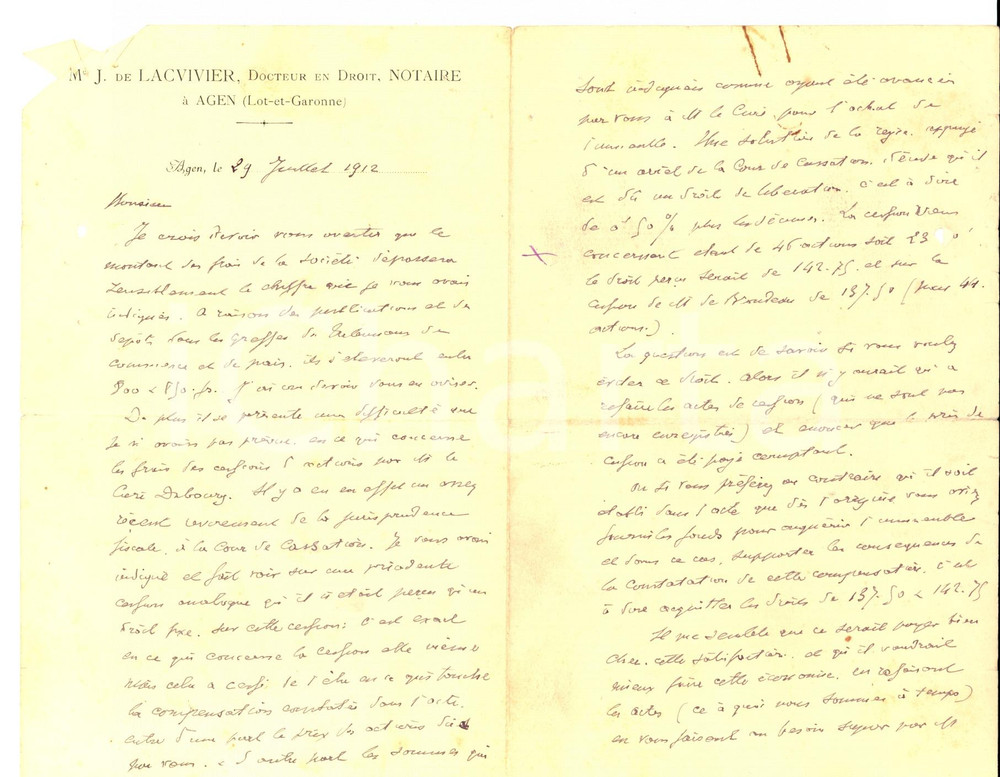 Me J. DE LACVIVIER, DOCTEUR EN DROIT, NOTAIRE
à AGEN (Lot-et-Garonne)
Agen, le 29 Juillet 1912
Monsieur
Je crois devoir vous avertir que le
montant des frais de la société dépassera
sensiblement le chiffre que je vous avais
indiqué. A raison des publications et du
dépôt dans les greffes du Tribunaux de
commerce et de paix, ils s'élèveront entre
800 & 850 f. J'ai cru devoir vous en aviser.
De plus il se présente une difficulté que
je n'avais pas prévue, en ce qui concerne
les frais des cessions d'actions par M le
Curé Dubourg. Il y a eu en effet un assez
récent revirement de la jurisprudence
fiscale, à la Cour de Cassation. Je vous avais
indiqué et fait voir sur une précédente
cession analogue qu'il n'était perçu qu'un
droit fixe, sur cette cession; c'est exact
en ce qui concerne la cession elle même
mais cela a cessé de l'être en ce qui touche
la compensation constatée dans l'acte,
entre d'une part le prix des actions dû
par vous, & d'autre part les sommes qui
sont indiquées comme ayant été avancées
par vous à M le Curé pour l'achat de
l'immeuble. Une solution de la régie, appuyée
d'un arrêt de la Cour de Cassation, décide qu'il
est dû un droit de libération, c'est à dire
de 0f 50 % plus les décimes. La cession vous
concernant étant de 46 actions soit 23
le droit perçu serait de 142.75, et sur la
cession de M de de 137.50 (pour 44
actions.)
La question est de savoir si vous voulez
éviter ce droit. Alors il n'y aurait qu'à
refaire les actes de cession (qui ne sont pas
encore enregistrés) et énoncer que le prix de
cession a été payé comptant.
Ou si vous préférez au contraire qu'il soit
établi dans l'acte que dès l'origine vous aviez
fourni les fonds pour acquérir l'immeuble
et dans ce cas, supporter les conséquences de
la constatation de cette compensation, c'est
à dire acquitter les droits de 137.50 & 142.75
Il me semble que ce serait payer bien
cher cette satisfaction, et qu'il vaudrait
mieux faire cette économie, en refaisant
les actes (ce à quoi nous sommes à temps)
en vous faisant au besoin signer par M